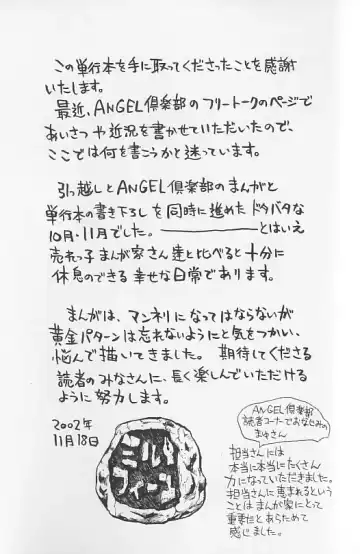 この単行本を手に取ってくださったことを感謝
いたします。
最近、ANGEL倶楽部のフリートークのページで
あいさつや近況を書かせていただいたので、
ここでは何を書こうかと迷っています。
引っ越しとANGEL倶楽部のまんがと
単行本の書き下ろしを同時に進めたドタバタな
10月・11月でした。――――とはいえ
売れっ子まんが家さん達と比べると十分に
休息のできる幸せな日常であります。
まんがは、マンネリになってはならないが
黄金パターンは忘れないようにと気をつかい、
悩んで描いてきました。期待してくださる
読者のみなさんに、長く楽しんでいただける
ように努力します。
2002年
11月18日
ミルフィーユ
ANGEL倶楽部
読者コーナーでおなじみの
まゆさん
担当さんには
本当に本当にたくさん
力になっていただきました。
担当さんに恵まれるという
ことはまんが家にとって
重要だとあらためて
感じました。